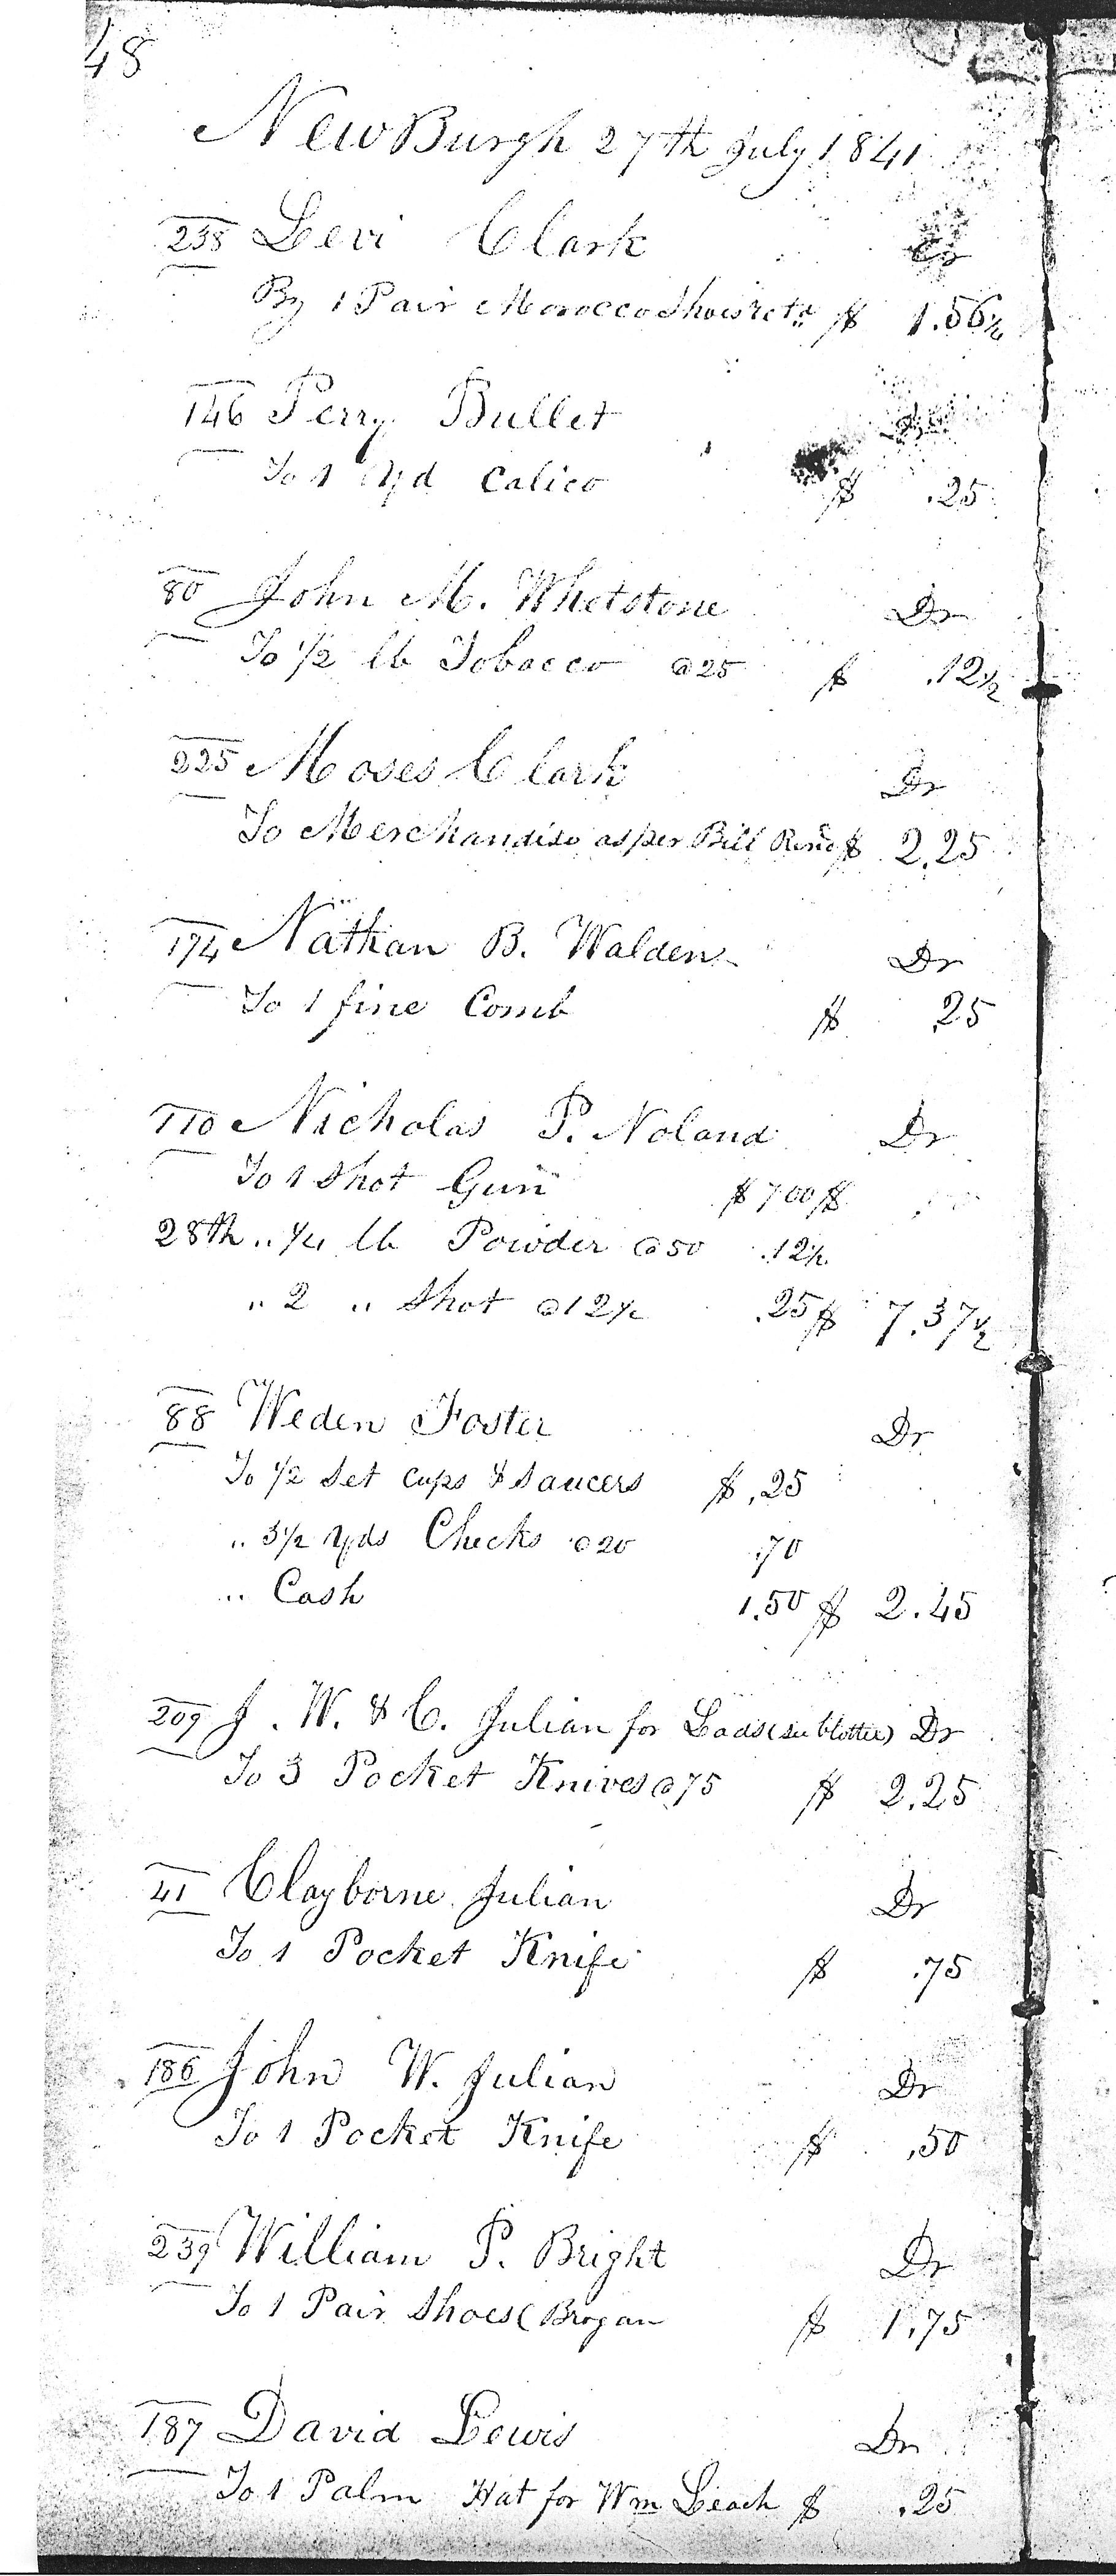 48
NewBurgh 27th July 1841
238 Levi Clark Cr
By 1 Pair Morocco Shoes retd $ 1.56½
146 Perry Bullet Dr
To 1 Yd Calico $ .25
80 John M. Whetstone Dr
To ½ lb Tobacco @25 $ .12½
225 Moses Clark Dr
To Merchandise as per Bill $ 2.25
174 Nathan B. Walden Dr
To 1 fine Comb $ .25
110 Nicholas P. Noland Dr
To 1 Shot Gun $ 7.00 $
28th " ¼ lb Powder @50 .12½
" 2 " Shot @12½ .25 $ 7.37½
88 Weden Foster Dr
To ½ Set Cups & Saucers $ .25
" 3½ Yds Checks @20 .70
" Cash 1.50 $ 2.45
209 J. W. & C. Julian for Lads (see blotter) Dr
To 3 Pocket Knives @75 $ 2.25
41 Clayborne Julian Dr
To 1 Pocket Knife $ .75
186 John W. Julian Dr
To 1 Pocket Knife $ .50
239 William P. Bright Dr
To 1 Pair Shoes (Brogan $ 1.75
187 David Lewis Dr
To 1 Palm Hat for Wm Leach $ .25